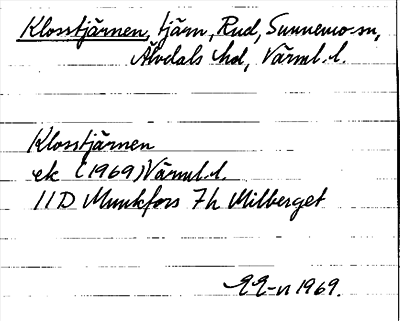 Klosstjärnen, tjärn, Rud, Sunnemo sn,
Älvdals hd, Värml. l.
Klosstjärnen
ek (1969) Värml. l.
11D Munkfors 7h Milberget
1969.